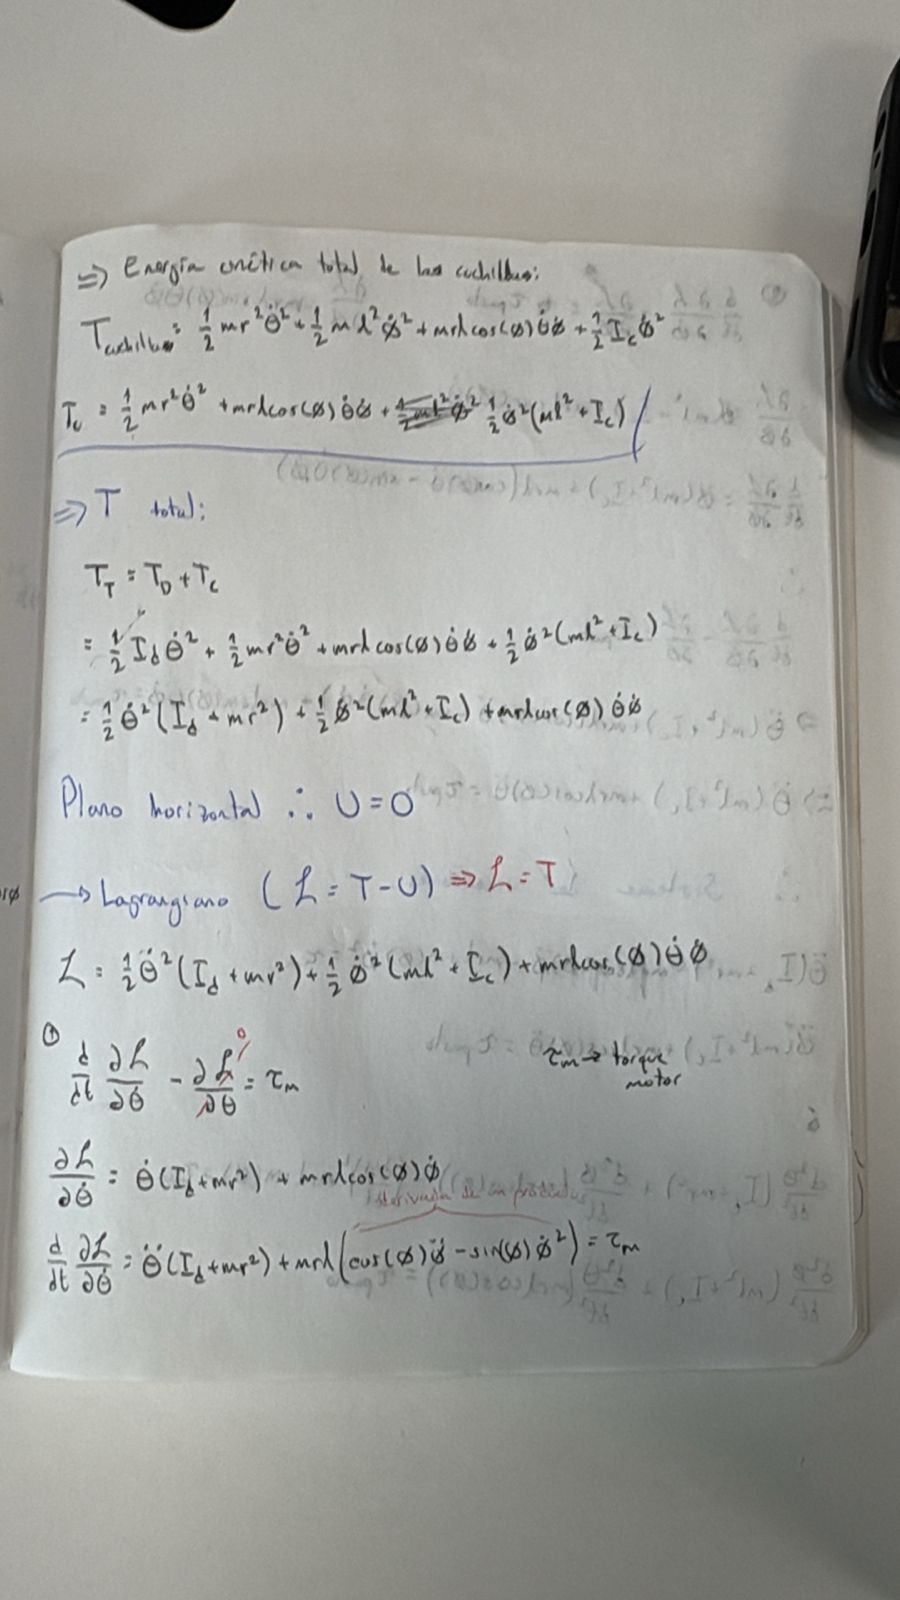 ⇒ Energía cinética total de las cuchillas:
T_cuchillas = 1/2 mr²θ̇² + 1/2 ml²ø̇² + mrl cos(ø) θ̇ø̇ + 1/2 I_c ø̇²
T_c = 1/2 mr²θ̇² + mrl cos(ø) θ̇ø̇ + 1/2 ø̇²(ml² + I_c)
⇒ T total:
T_T = T_D + T_c
= 1/2 I_d θ̇² + 1/2 mr²θ̇² + mrl cos(ø) θ̇ø̇ + 1/2 ø̇²(ml² + I_c)
= 1/2 θ̇²(I_d + mr²) + 1/2 ø̇²(ml² + I_c) + mrl cos(ø) θ̇ø̇
Plano horizontal ∴ U = 0
→ Lagrangiano (ℒ = T - U) ⇒ ℒ = T
ℒ = 1/2 θ̇²(I_d + mr²) + 1/2 ø̇²(ml² + I_c) + mrl cos(ø) θ̇ø̇
①
d/dt ∂ℒ/∂θ̇ - ∂ℒ/∂θ = τ_m
0
τ_m → torque motor
∂ℒ/∂θ̇ = θ̇(I_d + mr²) + mrl cos(ø) ø̇
derivada de un producto
d/dt ∂ℒ/∂θ̇ = θ̈(I_d + mr²) + mrl(cos(ø)ø̈ - sin(ø) ø̇²) = τ_m